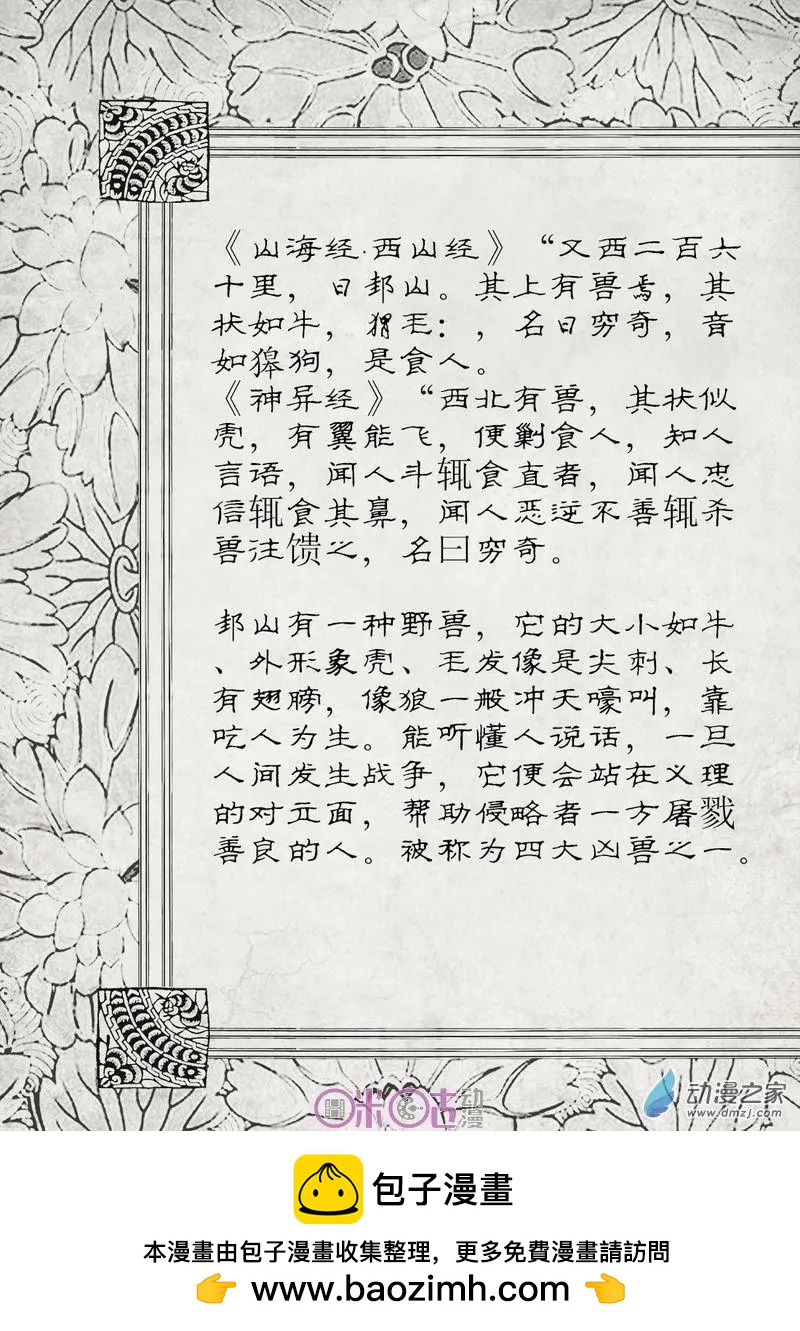 《山海经·西山经》“又西二百六
十里，曰邽山。其上有兽焉，其
状如牛，猬毛：，名曰穷奇，音
如獆狗，是食人。
《神异经》“西北有兽，其状似
虎，有翼能飞，便剿食人，知人
言语，闻人斗辄食直者，闻人忠
信辄食其鼻，闻人恶逆不善辄杀
兽往馈之，名曰穷奇。
邽山有一种野兽，它的大小如牛
、外形象虎、毛发像是尖刺、长
有翅膀，像狼一般冲天嚎叫，靠
吃人为生。能听懂人说话，一旦
人间发生战争，它便会站在义理
的对立面，帮助侵略者一方屠戮
善良的人。被称为四大凶兽之一。
咪咕动漫
动漫之家
www.dmzj.com
包子漫畫
本漫畫由包子漫畫收集整理，更多免費漫畫請訪問
👉 www.baozimh.com 👈